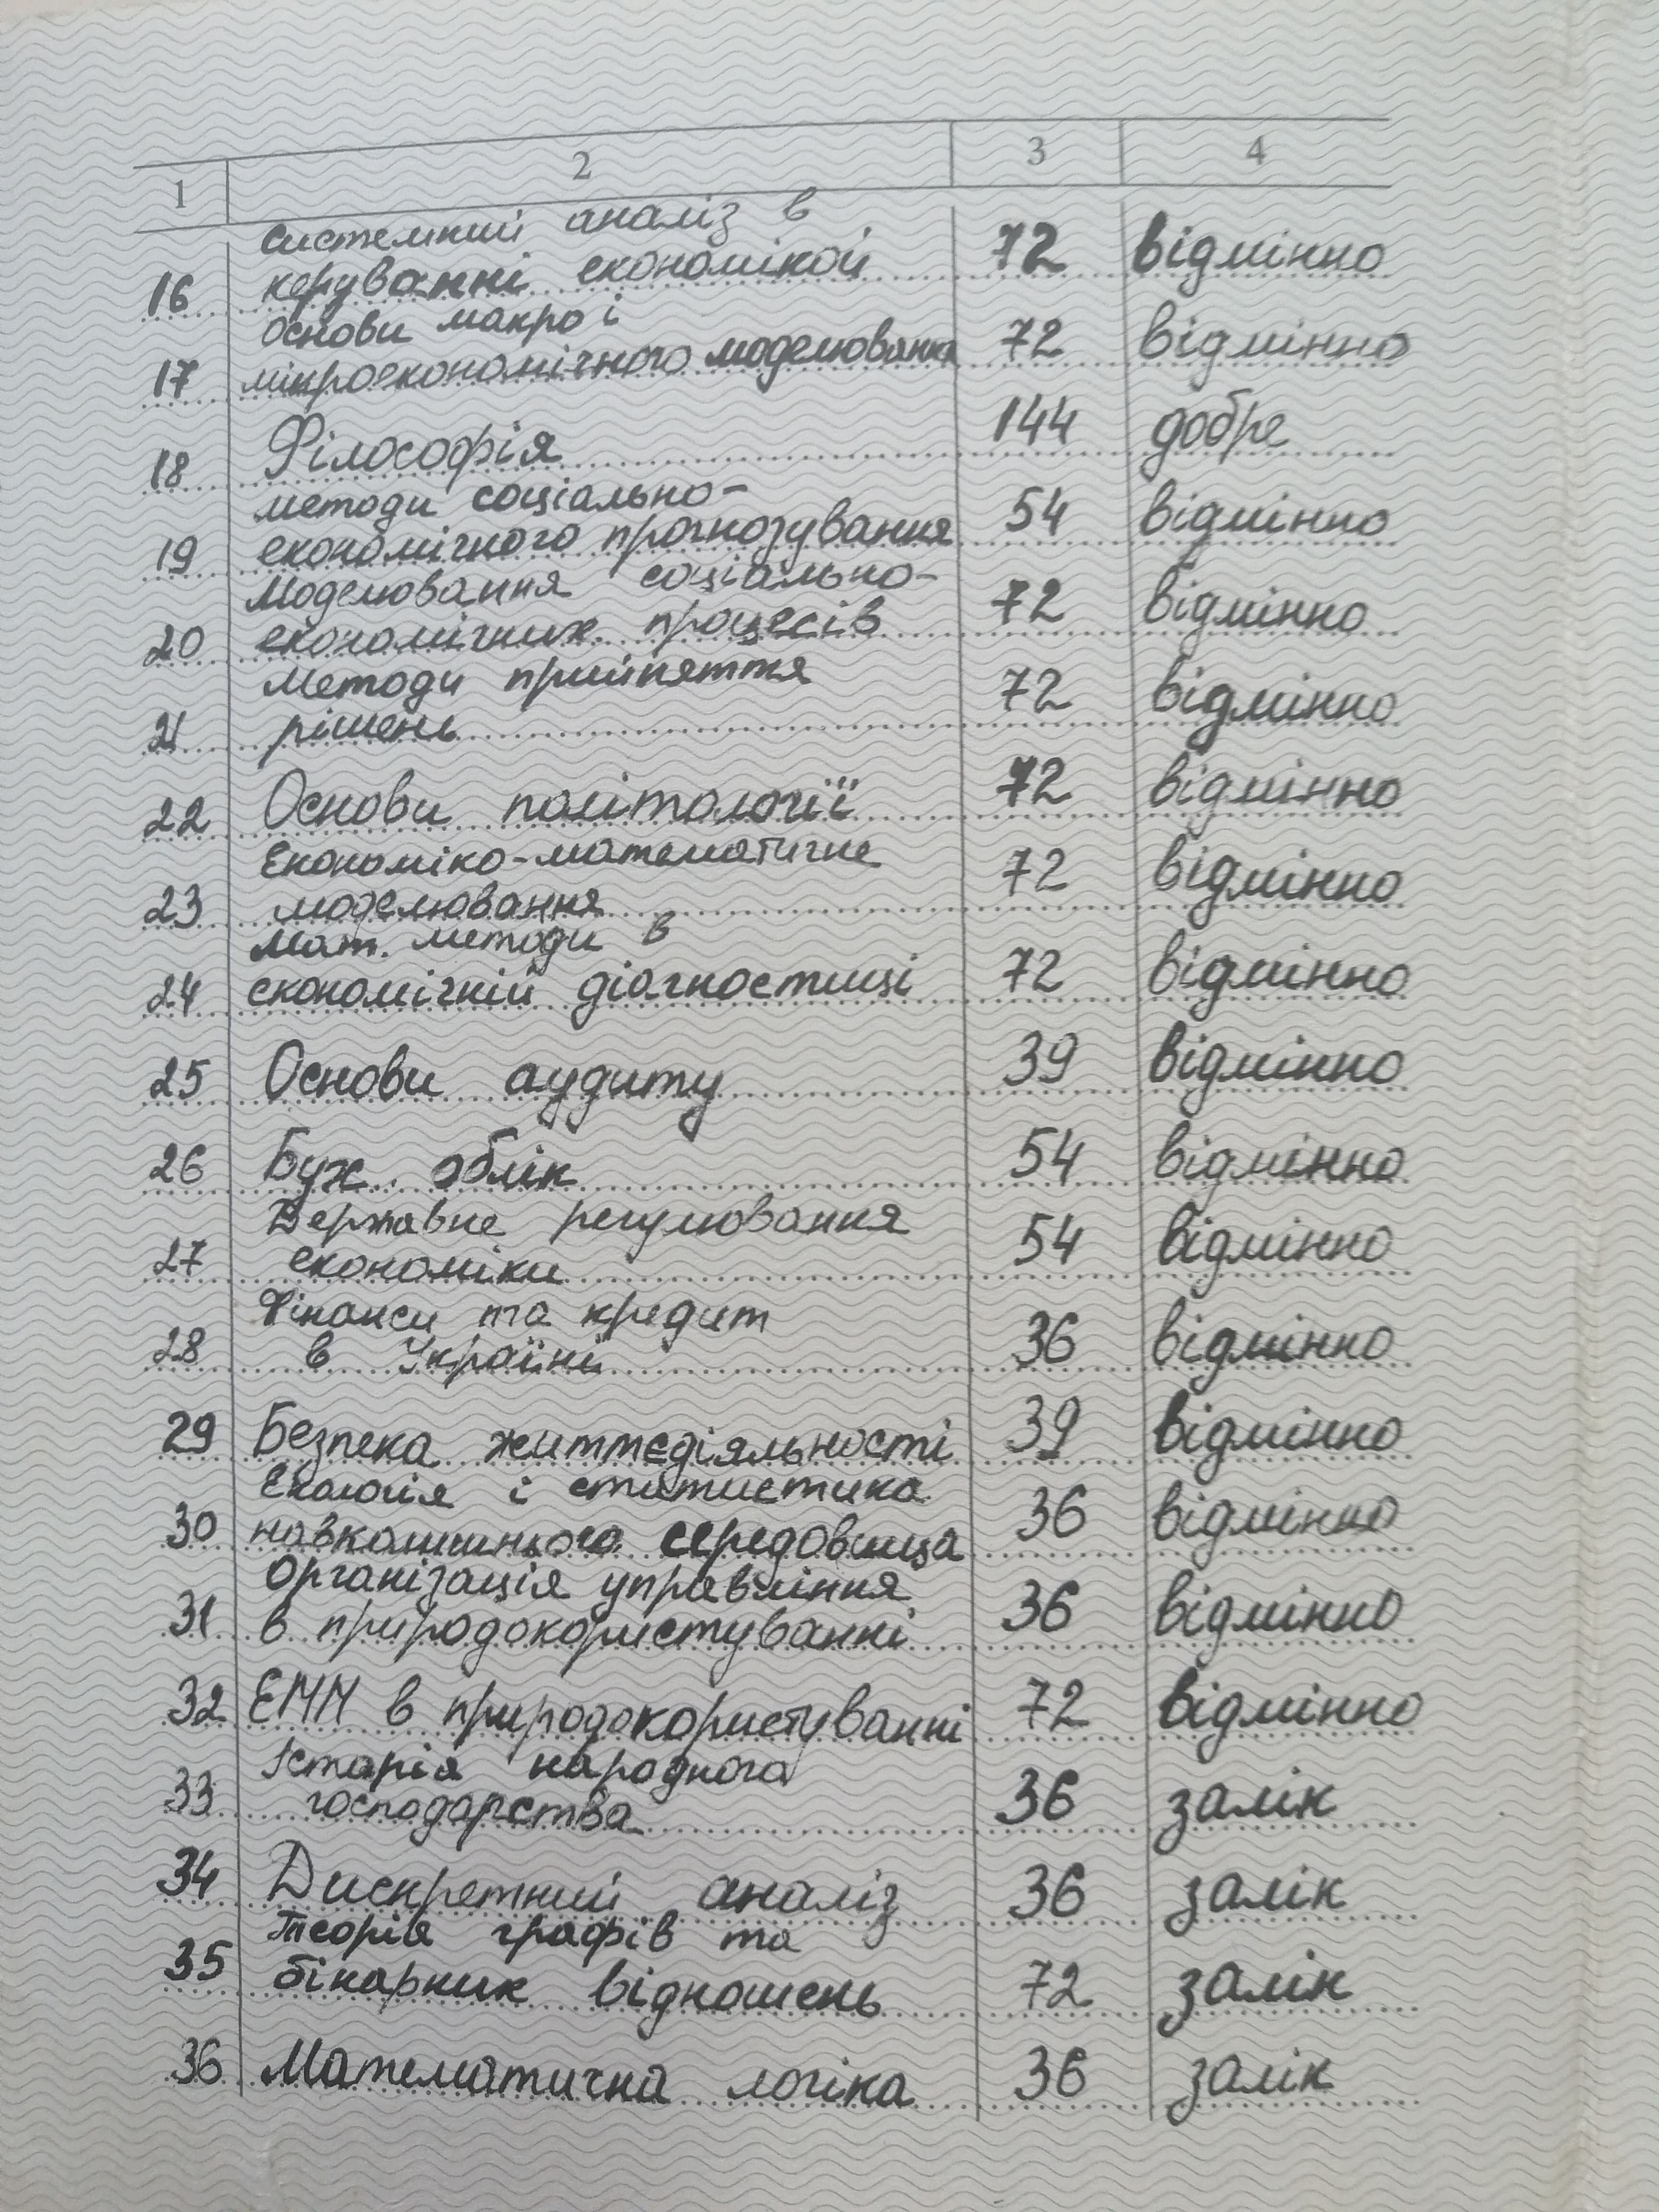 1 2 3 4
системний аналіз в
16 керуванні економікой 72 відмінно
основи макро і
17 мікроекономічного моделювання 72 відмінно
18 Філософія 144 добре
методи соціально-
19 економічного прогнозування 54 відмінно
Моделювання соціально-
20 економічних процесів 72 відмінно
Методи прийняття
21 рішень 72 відмінно
22 Основи політології 72 відмінно
Економіко-математичне
23 моделювання 72 відмінно
Мат. методи в
24 економічній діагностиці 72 відмінно
25 Основи аудиту 39 відмінно
26 Бух. облік 54 відмінно
Державне регулювання
27 економіки 54 відмінно
Фінанси та кредит
28 в Україні 36 відмінно
29 Безпека життєдіяльності 39 відмінно
Екологія і статистика
30 навколишнього середовища 36 відмінно
Організація управління
31 в природокористуванні 36 відмінно
32 ЕММ в природокористуванні 72 відмінно
Історія народного
33 господарства 36 залік
34 Дискретний аналіз 36 залік
Теорія графів та
35 бінарних відношень 72 залік
36 Математична логіка 36 залік